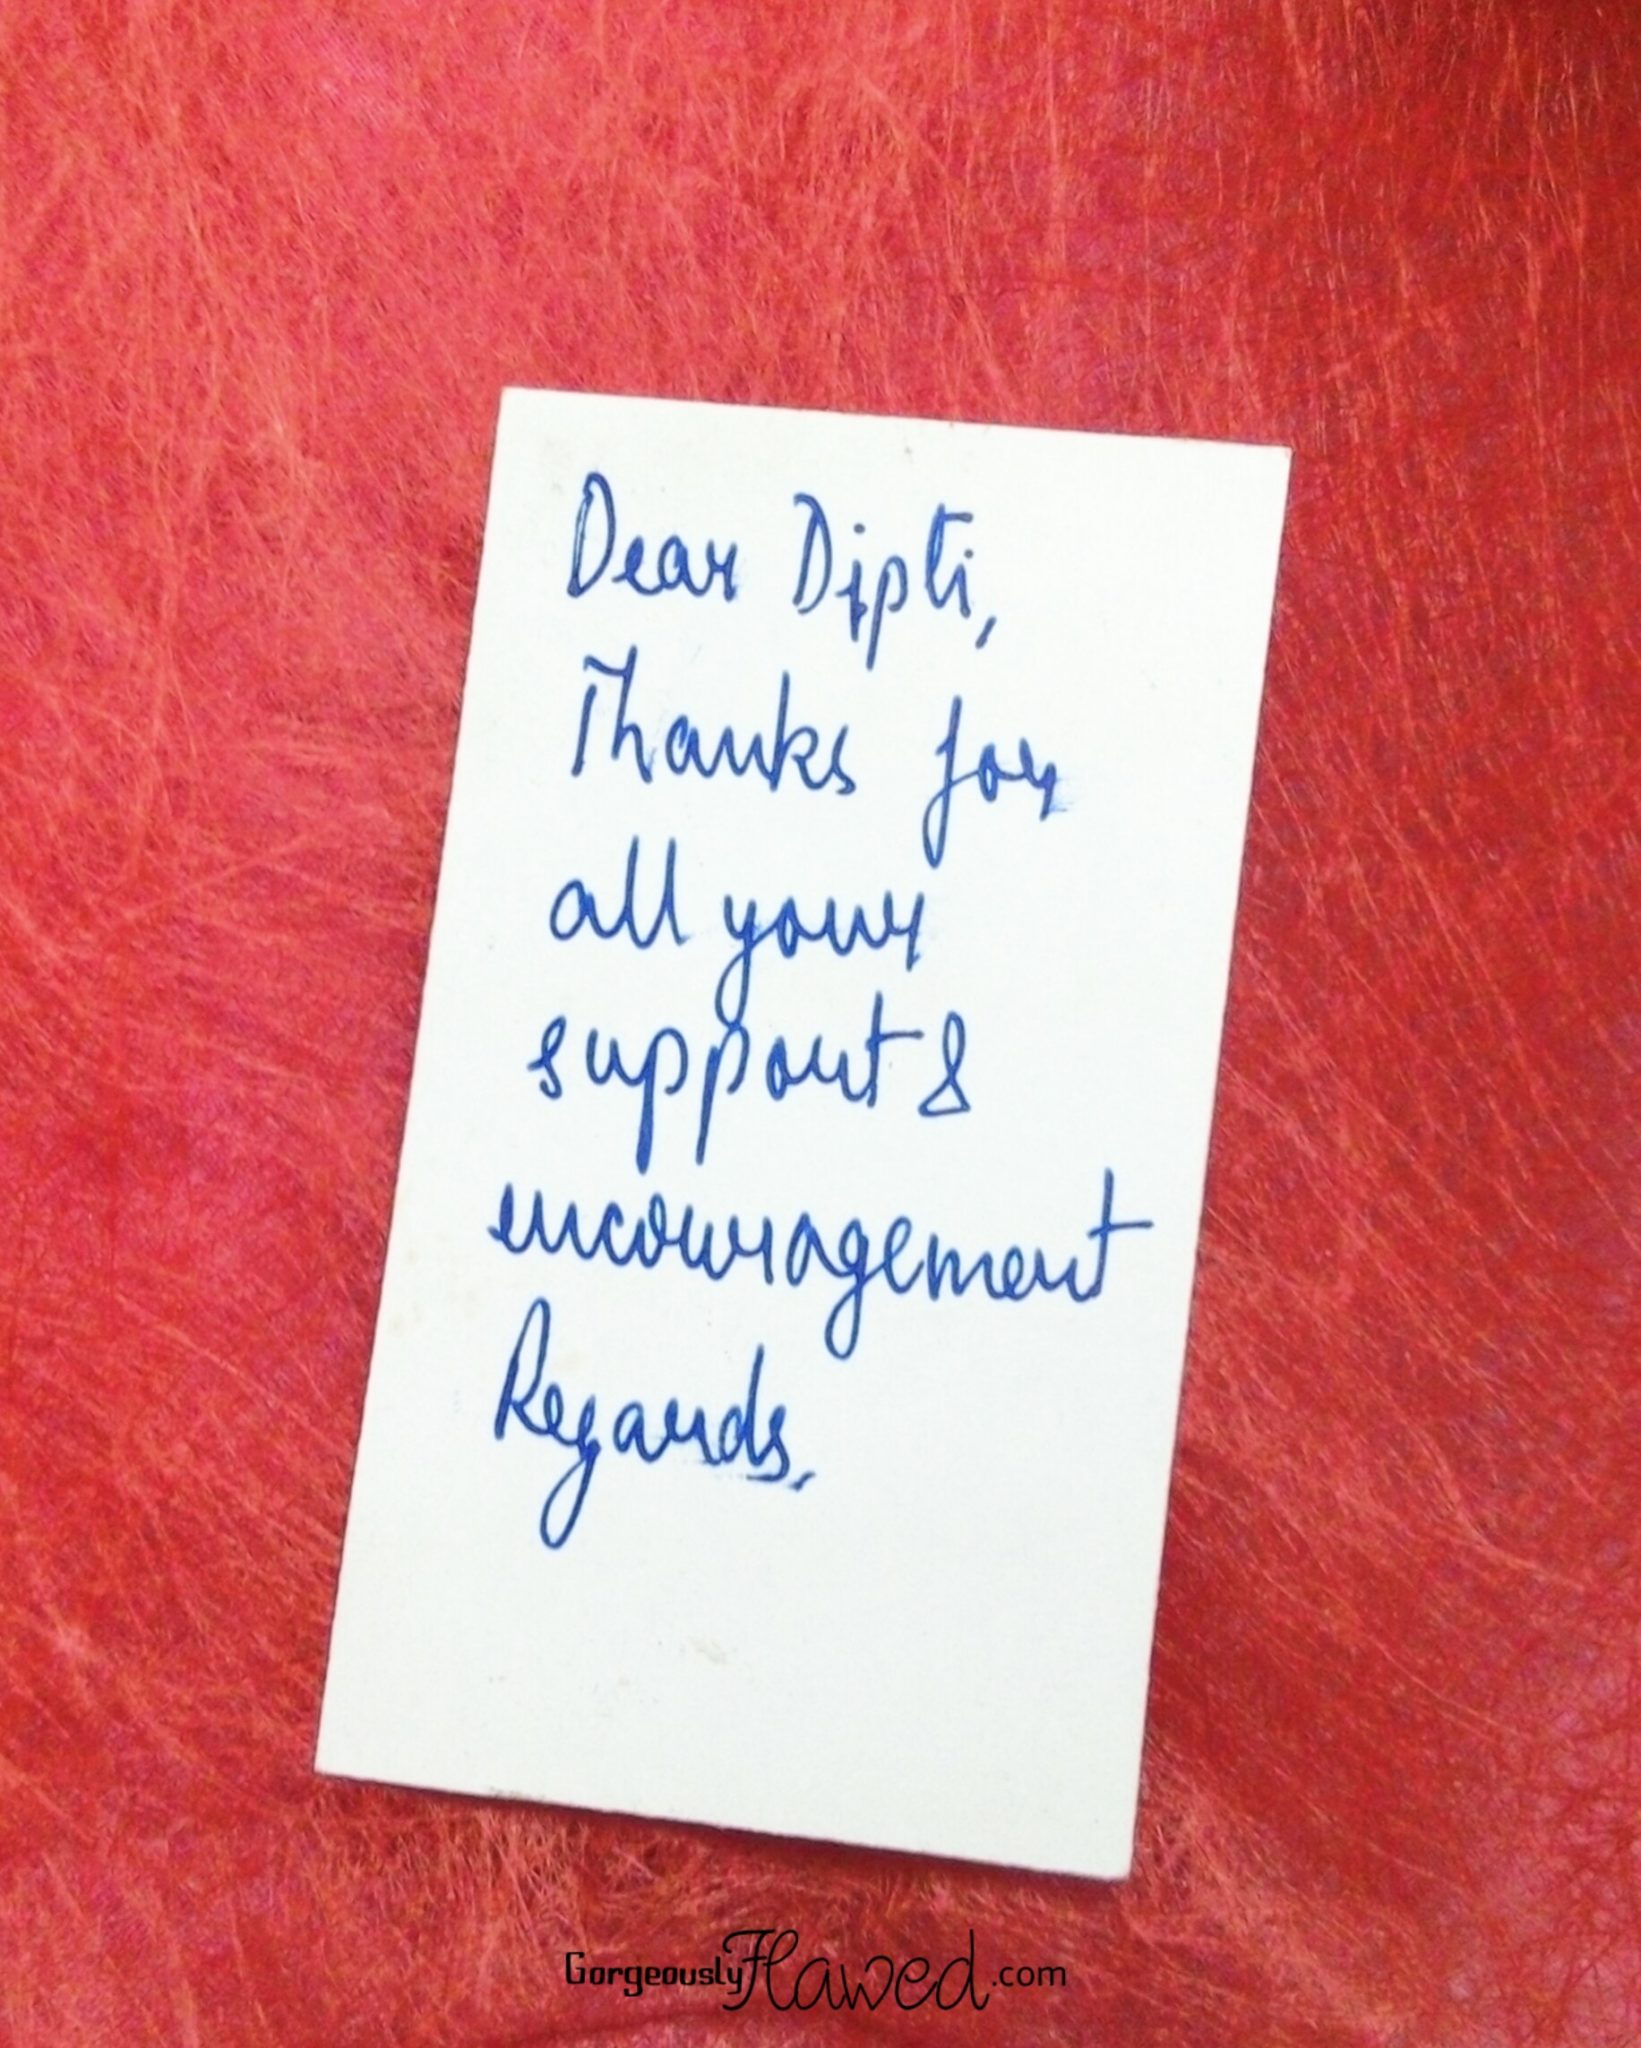 Dear Dipti,
Thanks for
all your
support &
encouragement
Regards,
GorgeouslyFlawed.com